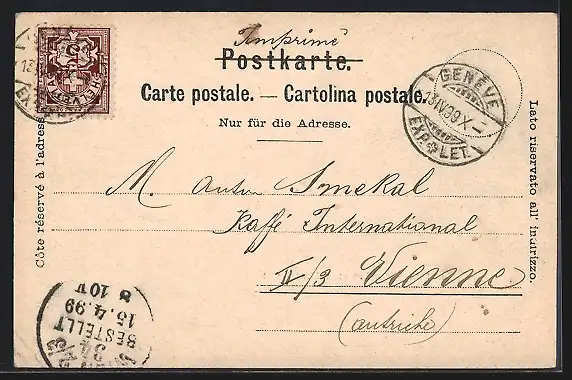 Imprimé
Postkarte.
Carte postale. — Cartolina postale.
Nur für die Adresse.
Côte réservé à l'adresse
Lato riservato all' indirizzo.
GENÈVE
13 IV 99 X
EXP. LET.
M. Anton Smekal
Kaffé International
II/3 Vienne
(autriche)
BESTELLT
15.4.99
8 10 V